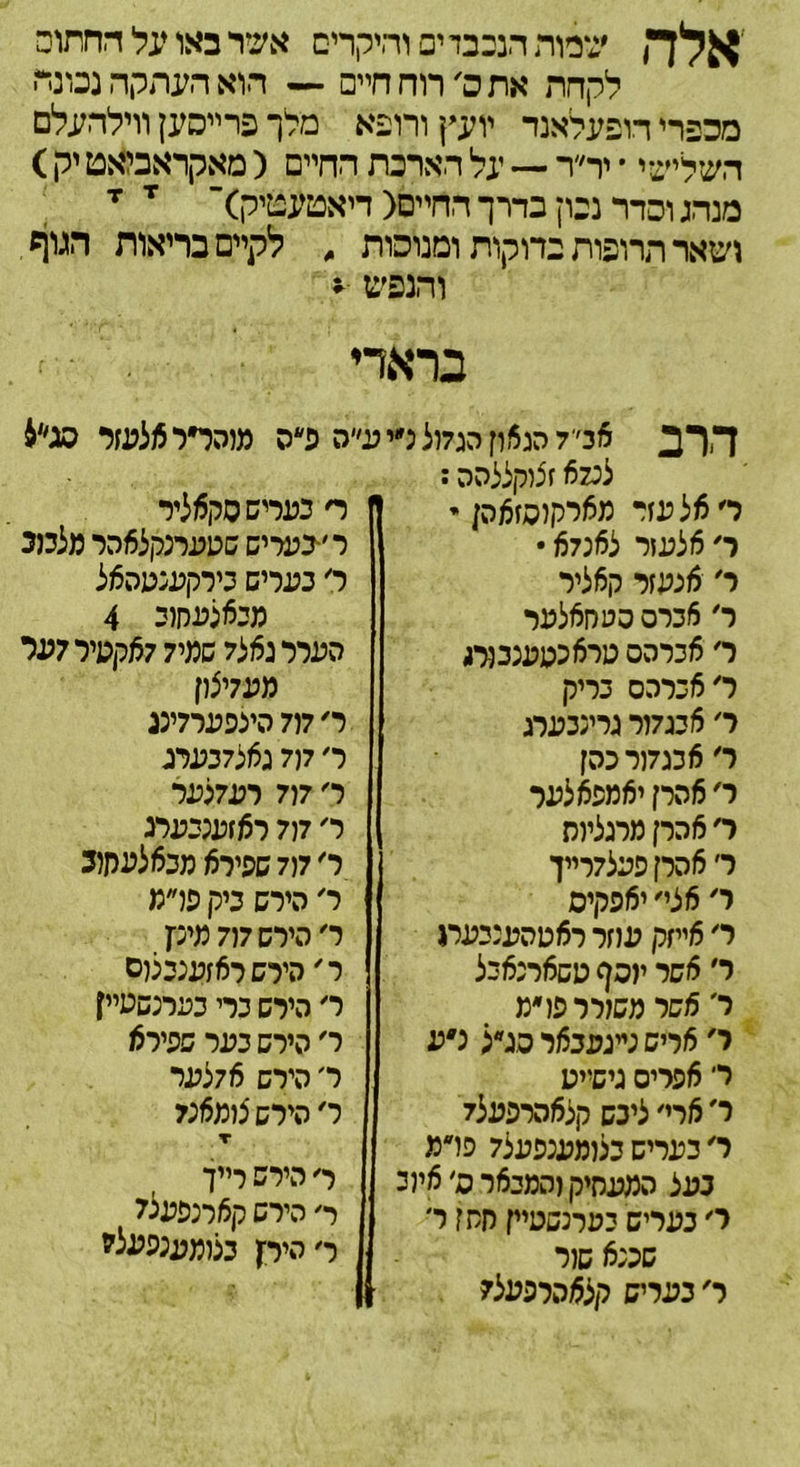 אלה שמות הנכבדים והיקרים אשר באו על החתום
לקחת את ס׳ רוח חיים — הוא העתקה נכונה
מספרי הופעלאנד יועץ ורופא מלך פרייסען ווילהעלם
השלישי יר״ר — על הארכת החיים (מאקראביאטיק)
מנהג וסדר נכון בדרך החיים (דיאטעטיק)
ושאר תרופות בדוקות ומנוסות, לקיים בריאות הגוף
והנפש
בראדי
הרב אב״ד הגאון הגדול נ״י ע״ה פ״ה מוהר״ר אלעזר סג״ל
לנדא זלוקללהה :
ר׳ אלעזר מארקוסזאהן
ר׳ אלעזר לאנדא
ר׳ אנעזר קאליר
ר׳ אברם סטחאלער
ר׳ אברהם טראכטענבורג
ר׳ אברהם בריק
ר׳ אבגדור גרינבערג
ר׳ אבגדור כהן
ר׳ אהרן יאמפאלער
ר׳ אהרן מרגליות
ר׳ אהרן פעלדרייך
ר׳ אלי׳ יאפקיס
ר׳ אייזק עוזר ראטהענבערג
ר׳ אשר יוסף טשארנאבל
ר׳ אשר משורר פו״מ
ר׳ אריש ניינעבאר סג״ל נ״ע
ר׳ אפרים גישייט
ר׳ ארי׳ ליבש קלאהרפעלד
ר׳ בעריש בלומענפעלד פו״מ
בעל המעתיק והמבאר ס׳ איוב
ר׳ בעריש בערנשטיין חתן ר׳
שכנא שור
ר׳ בעריש קלאהרפעלד
ר׳ בעריש סקאליר
ר׳ בעריש שטערנקלאהר מלבוב
ר׳ בעריש בירקענטהאל
מבאלעחוב 4
הערר גאלד שמיד דאקטיר דער
מעדילין
ר׳ דוד הינפערדינג
ר׳ דוד גאלדבערג
ר׳ דוד רעדלער
ר׳ דוד ראזענבערג
ר׳ דוד שפירא מבאלעחוב
ר׳ הירש ביק פו״מ
ר׳ הירש דוד מינץ
ר׳ הירש ראזענבלום
ר׳ הירש ברי בערנשטיין
ר׳ הירש בער שפירא
ר׳ הירש אדלער
ר׳ הירש לומאנד
ר׳ הירש רייך
ר׳ הירש קארנפעלד
ר׳ הירץ בלומענפעלד